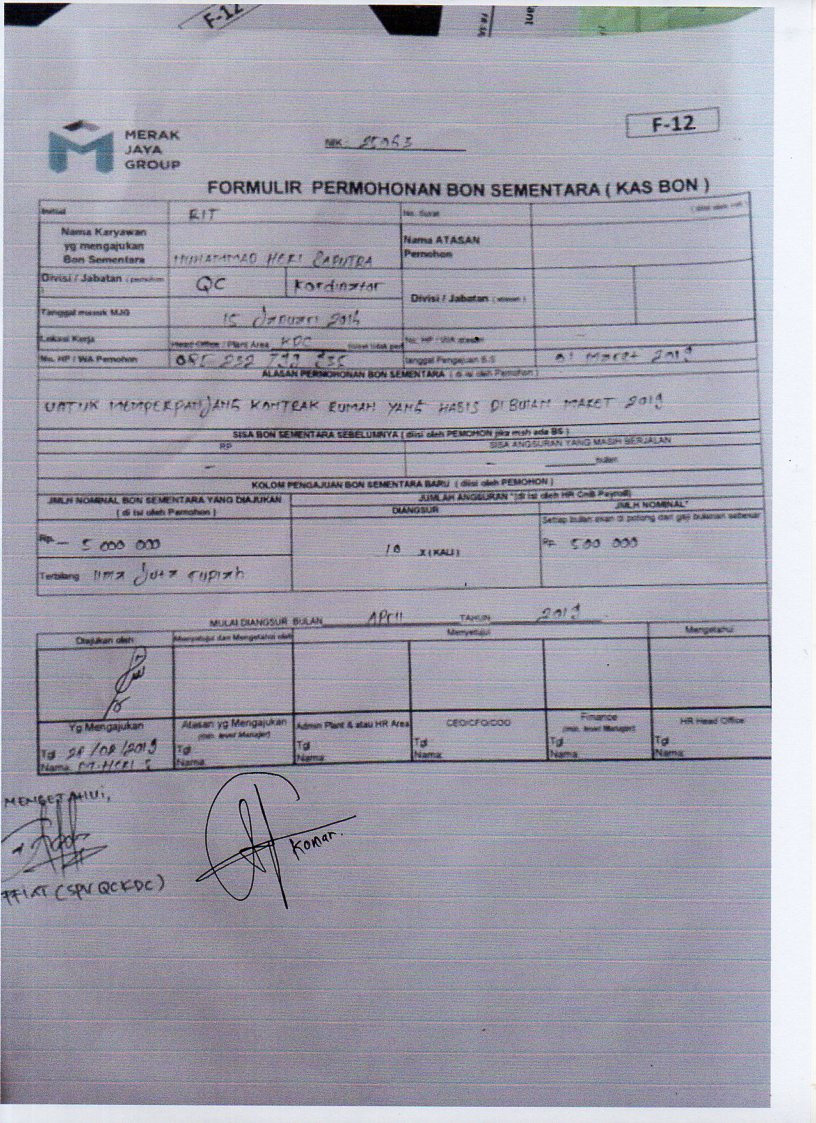 F-12
MERAK
JAYA
GROUP
NIK :
F-12
FORMULIR PERMOHONAN BON SEMENTARA ( KAS BON )
Initial RIT No. Surat
Nama Karyawan
yg mengajukan
Bon Sementara MUHAMMAD HERI SAPUTRA
Nama ATASAN
Pemohon
Divisi / Jabatan ( pemohon ) QC Kordinator
Divisi / Jabatan ( atasan )
Tanggal masuk MJG 15 Januari
Lokasi Kerja Head Office / Plant Area KDC No. HP / WA atasan -
No. HP / WA Pemohon tanggal Pengajuan B.S 01 Maret 2019
ALASAN PERMOHONAN BON SEMENTARA ( di isi oleh Pemohon )
UNTUK MEMPERPANJANG KONTRAK RUMAH YANG HABIS DI BULAN MARET 2019
SISA BON SEMENTARA SEBELUMNYA ( diisi oleh PEMOHON jika msh ada BS )
RP SISA ANGSURAN YANG MASIH BERJALAN
- - bulan
KOLOM PENGAJUAN BON SEMENTARA BARU ( diisi oleh PEMOHON )
JMLH NOMINAL BON SEMENTARA YANG DIAJUKAN
( di isi oleh Pemohon )
JUMLAH ANGSURAN "(di isi oleh HR CnB Payroll)
DIANGSUR JMLH NOMINAL"
Setiap bulan akan di potong dari gaji bulanan sebesar
Rp. - 5 000 000 10 X (KALI) Rp 500 000
Terbilang lima Juta rupiah
MULAI DIANGSUR BULAN APril TAHUN 2019
Diajukan oleh Menyetujui dan Mengetahui oleh Menyetujui Mengetahui
Yg Mengajukan Atasan yg Mengajukan
(min. level Manajer) Admin Plant & atau HR Area CEO/CFO/COO Finance
(min. level Manajer) HR Head Office
Tgl 28/02/2019 Tgl Tgl Tgl Tgl Tgl
Nama: M. HERI S Nama: Nama: Nama: Nama: Nama:
MENGETAHUI,
Komar.
(SPV QC KDC)